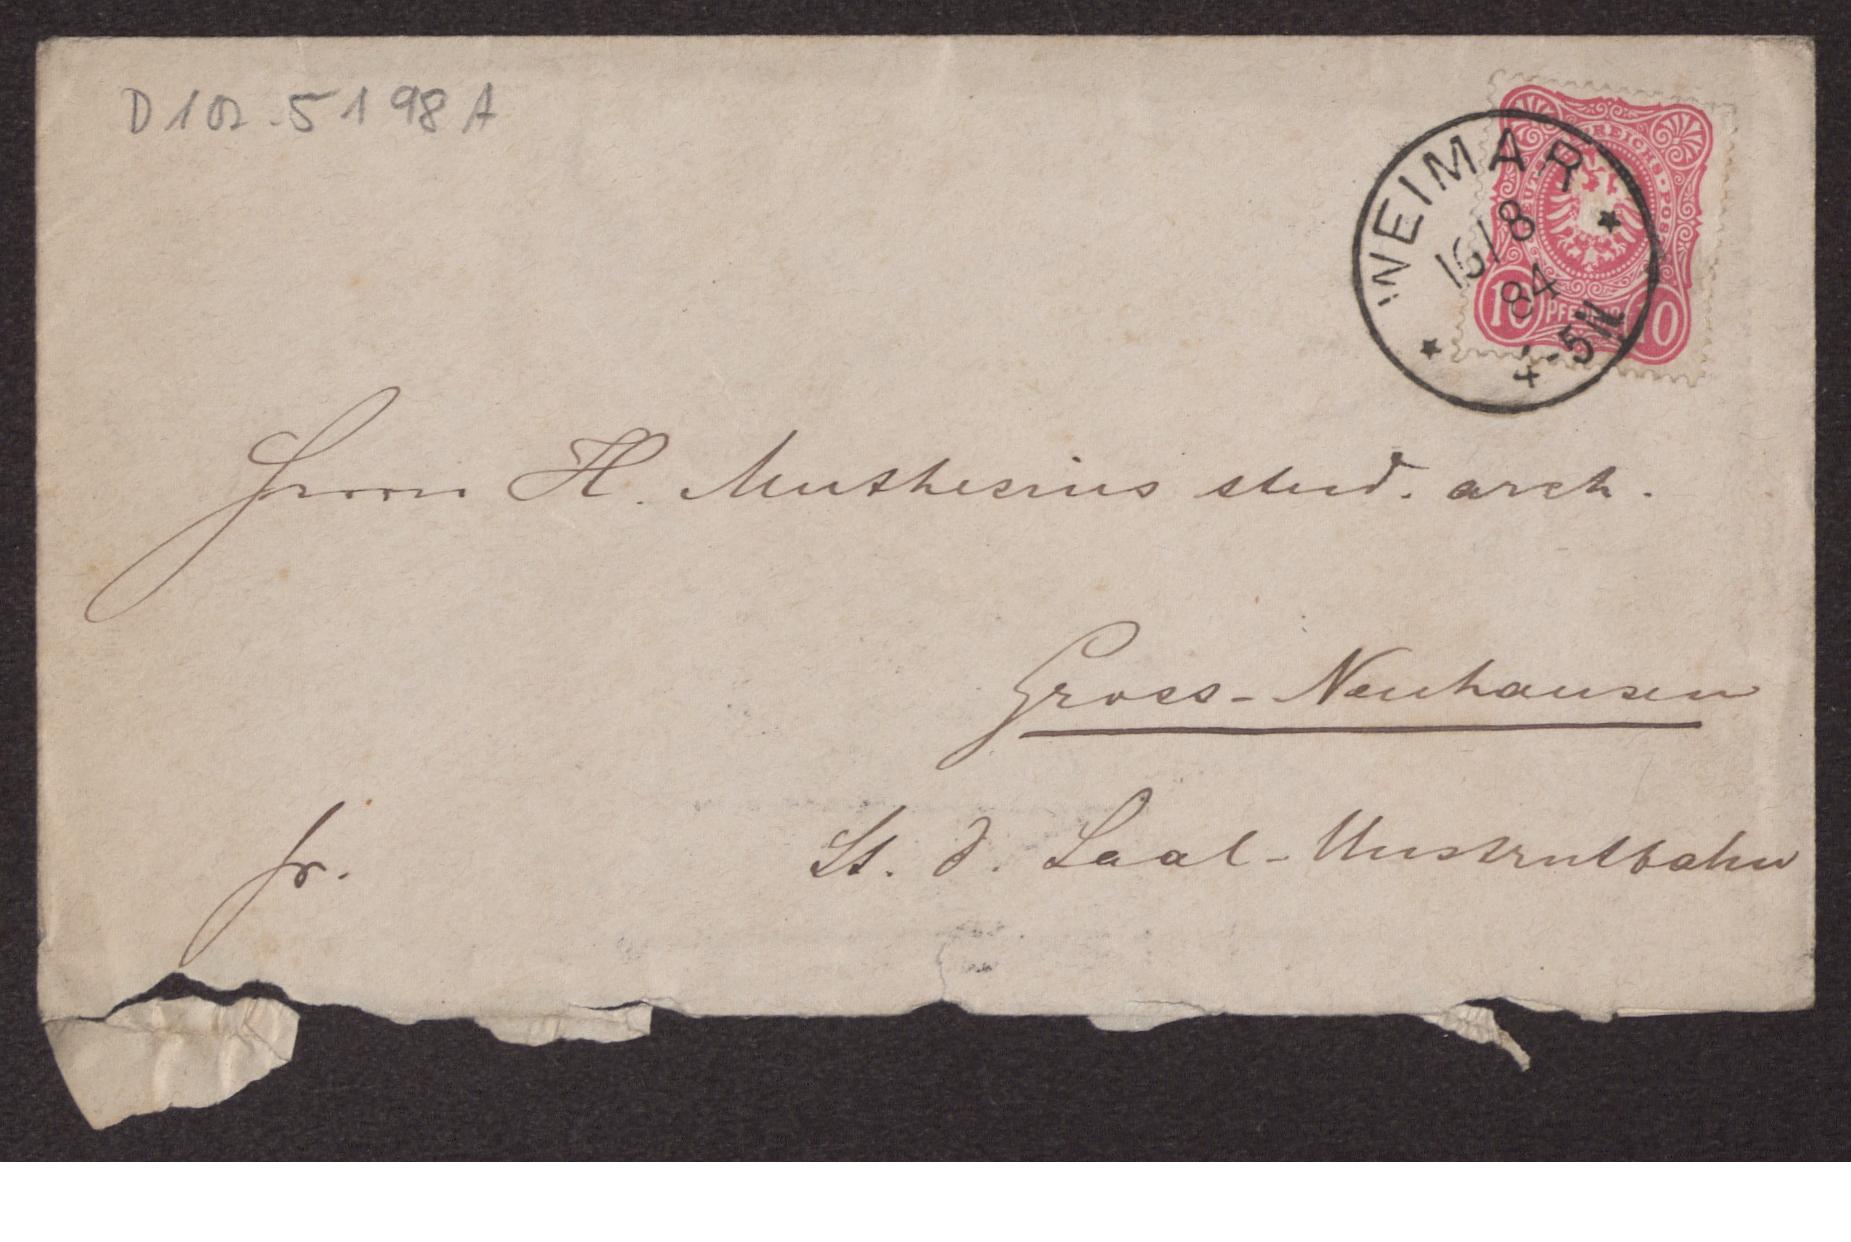 D 102-5198 A
DEUTSCHE REICHS-POST
WEIMAR
16/8
84
4-5N
10 PFENNIG 10
Herrn H. Muthesius stud. arch.
Gross-Neuhausen
fr.
St. d. Saal-Unstrutbahn